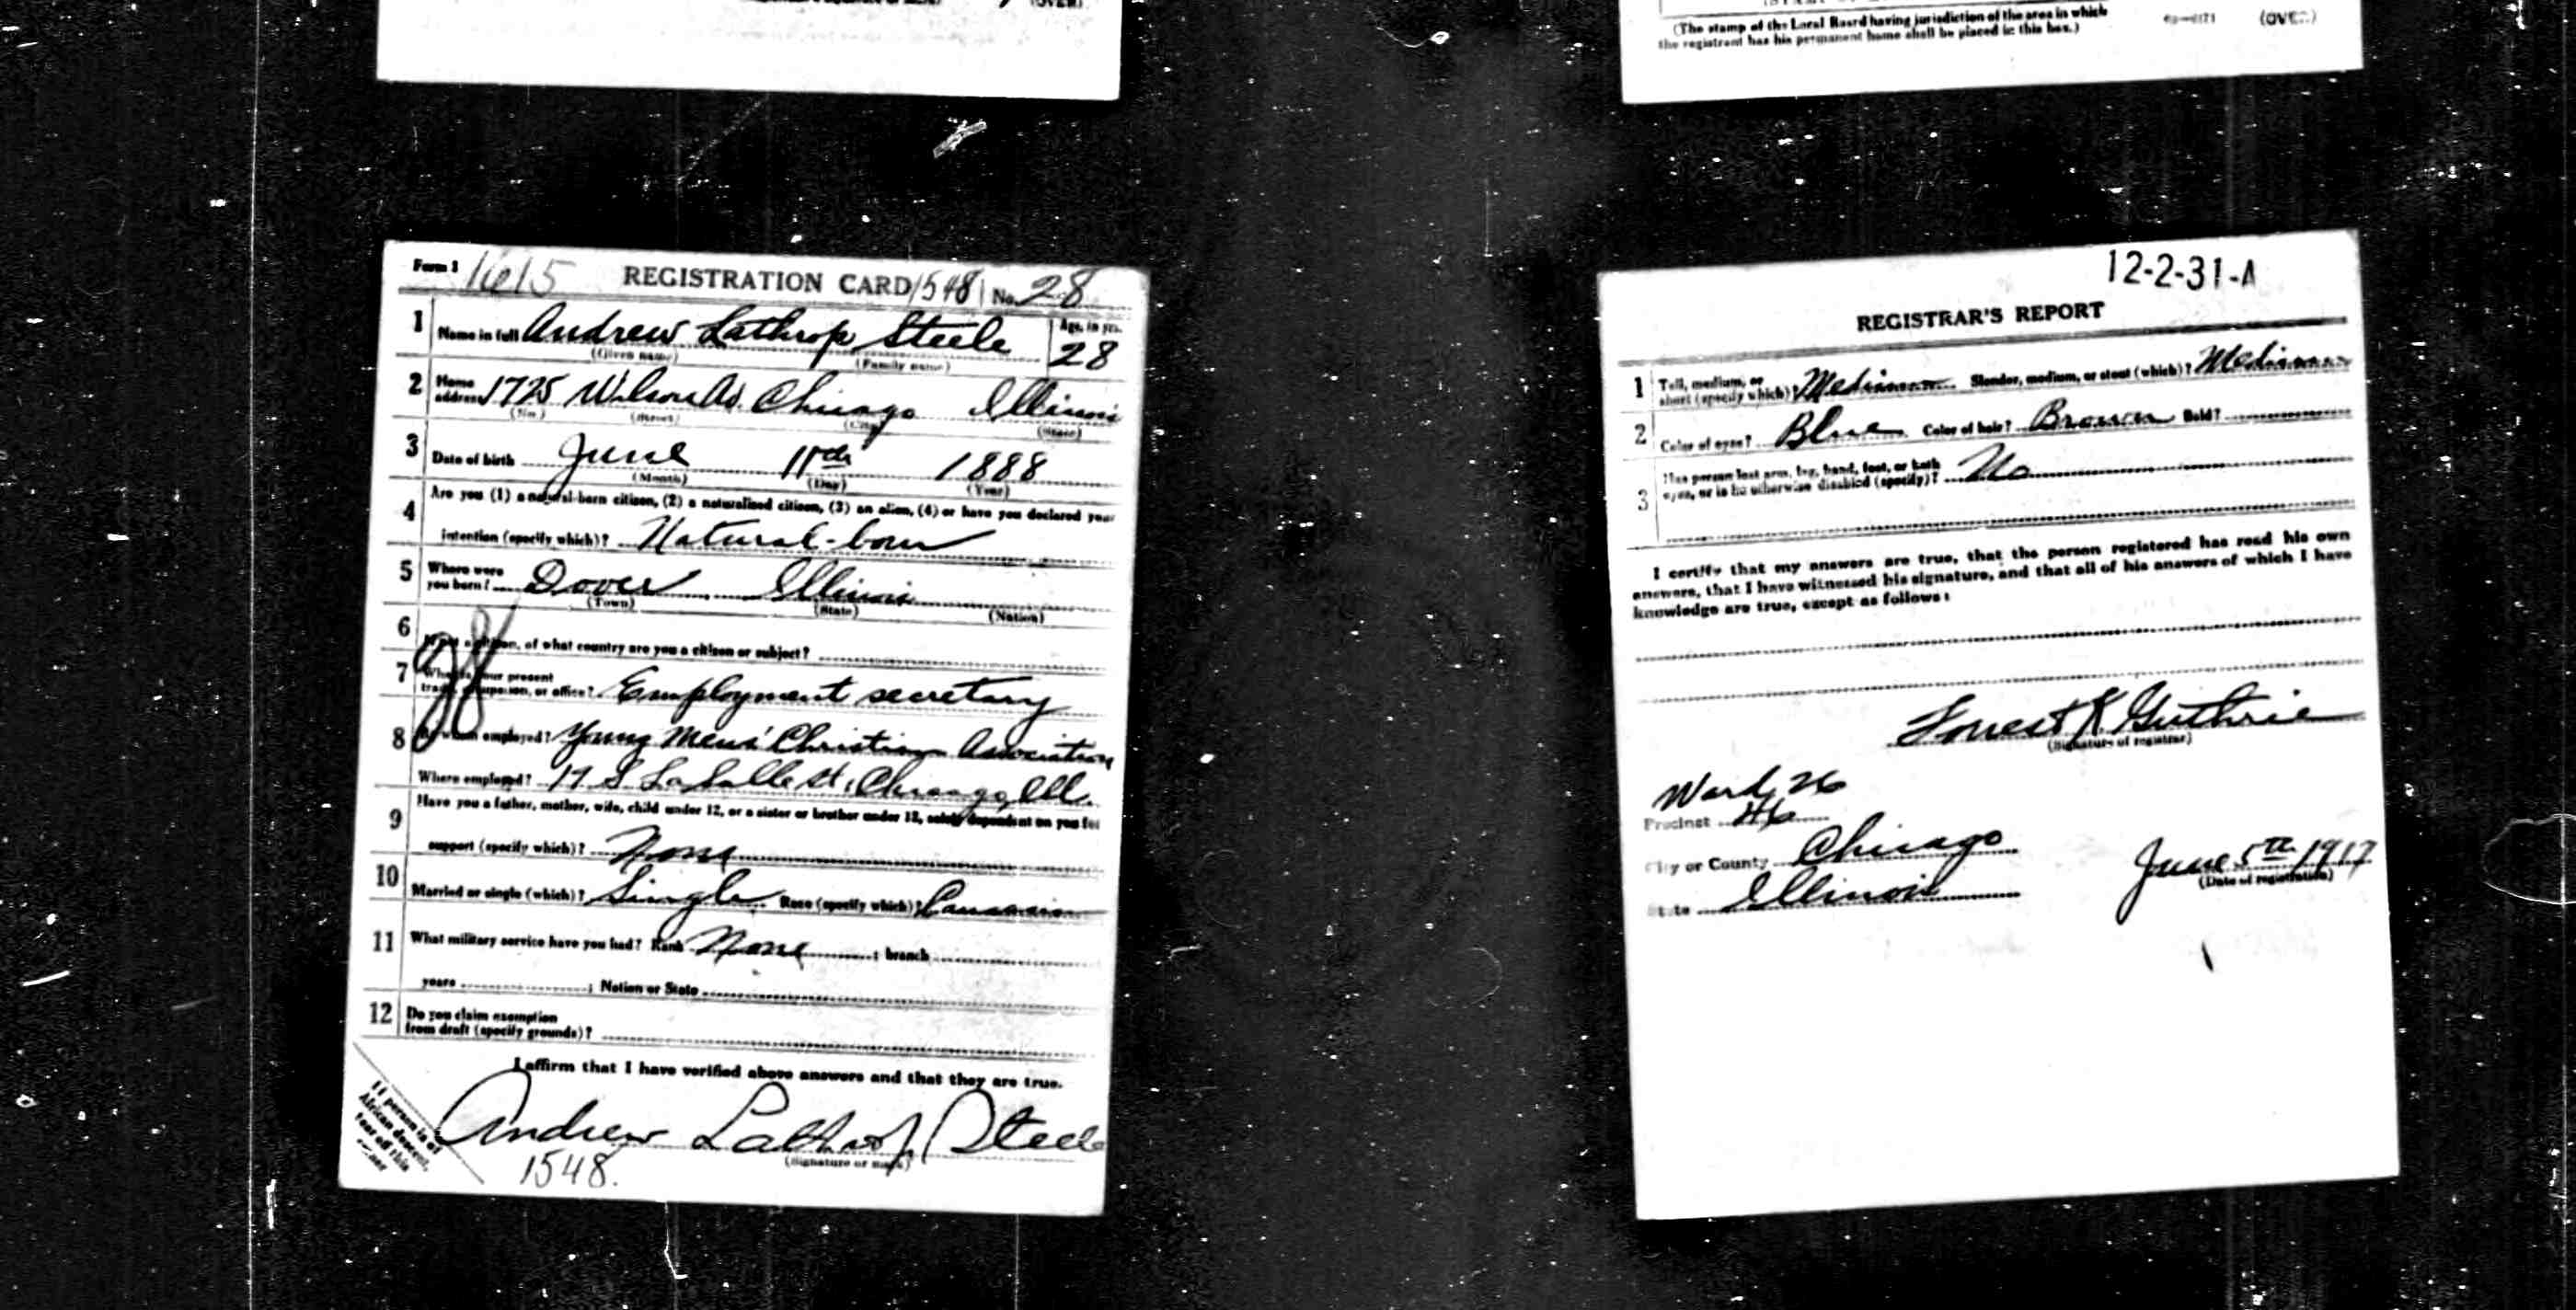 (OVER)
(The stamp of the Local Board having jurisdiction of the area in which
the registrant has his permanent home shall be placed in this box.)
(OVER)
Form 1 1615 REGISTRATION CARD 1548 No. 28
1 Name in full Andrew Lathrop Steele Age, in yrs. 28
(Given name) (Family name)
2 Home address 1725 Wilson Av. Chicago Illinois
(No.) (Street) (City) (State)
3 Date of birth June 11th 1888
(Month) (Day) (Year)
4 Are you (1) a natural-born citizen, (2) a naturalized citizen, (3) an alien, (4) or have you declared your
intention (specify which)? Natural-born
5 Where were you born? Dover Illinois
(Town) (State) (Nation)
6 If not a citizen, of what country are you a citizen or subject?
7 What is your present
trade, occupation, or office? Employment secretary
8 By whom employed? Young Mens' Christian Association
Where employed? 17 S LaSalle St, Chicago, Ill.
9 Have you a father, mother, wife, child under 12, or a sister or brother under 12, solely dependent on you for
support (specify which)? None
10 Married or single (which)? Single Race (specify which)? Caucasian
11 What military service have you had? Rank None ; branch
years ; Nation or State
12 Do you claim exemption
from draft (specify grounds)?
I affirm that I have verified above answers and that they are true.
Andrew Lathrop Steele
(Signature or mark)
1548.
If person is of
African descent,
tear off this
corner
12-2-31-A
REGISTRAR'S REPORT
1 Tall, medium, or
short (specify which)? Medium Slender, medium, or stout (which)? Medium
2 Color of eyes? Blue Color of hair? Brown Bald?
3 Has person lost arm, leg, hand, foot, or both
eyes, or is he otherwise disabled (specify)? No
I certify that my answers are true, that the person registered has read his own
answers, that I have witnessed his signature, and that all of his answers of which I have
knowledge are true, except as follows:
Forrest K Guthrie
(Signature of registrar)
Ward 26
Precinct 46
City or County Chicago
State Illinois
June 5th 1917
(Date of registration)